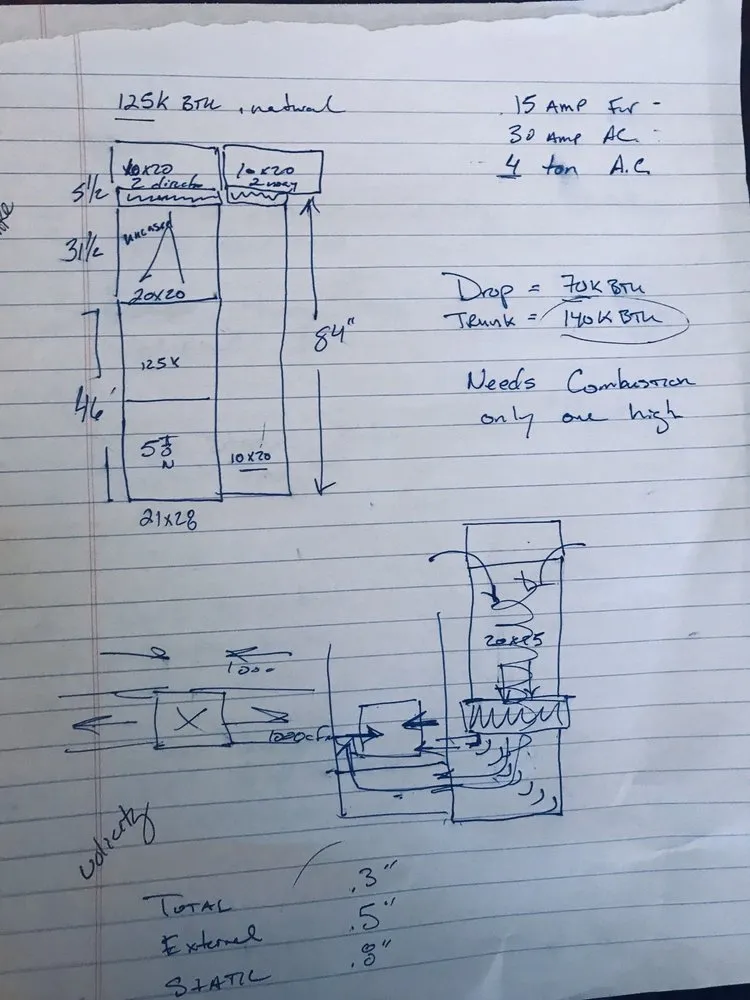 125K BTU . natural
15 AMP Fur -
30 AMP AC -
4 ton A.C
10x20
2 direct
10x20
2 way
5 1/2
31 1/2
uncased
20x20
84"
Drop = 70K BTU
Trunk = 140K BTU
Needs Combustion
only one high
125K
46"
5
10x20
21x28
20x25
1000
X
1000cfm
velocity
TOTAL .3"
External .5"
STATIC .8"